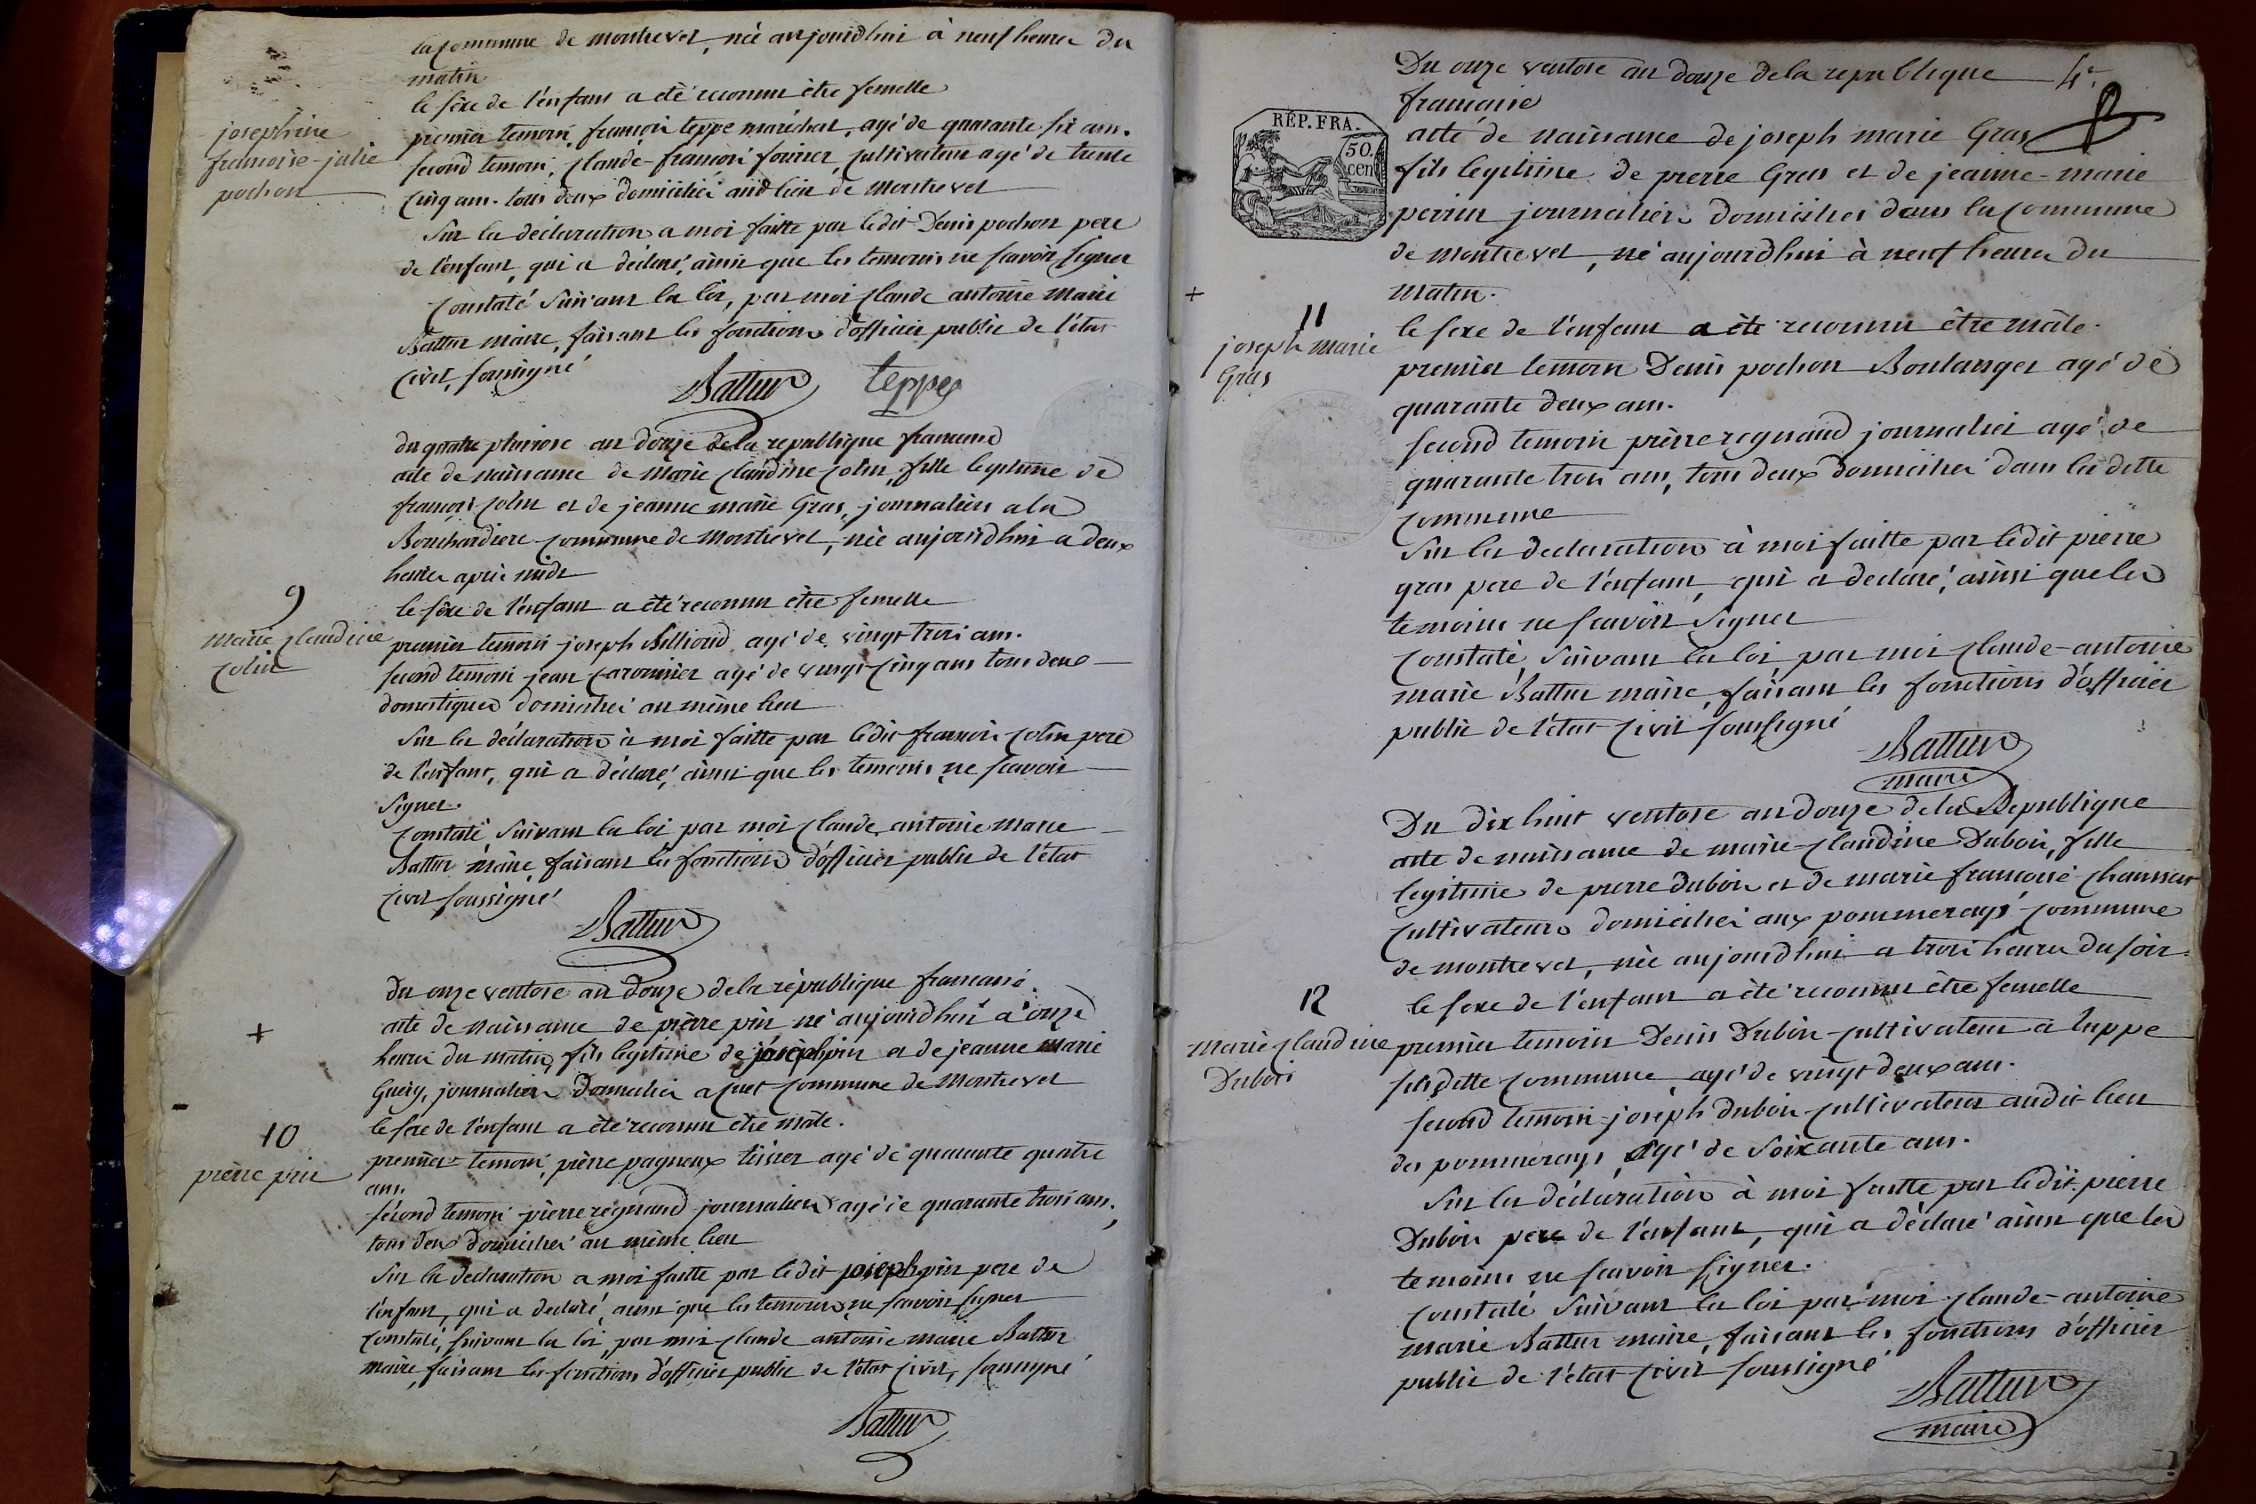 la commune de montrevel, née aujourdhui à neuf heures du
matin
le sexe de l'enfant a été reconnu être femelle
josephine
francoise-julie
pochon
premier temoin, francois teppe maréchal, agé de quarante six ans.
second temoin, claude-francois forinier, cultivateur agé de trente
cinq ans. tous deux domiciliés audit lieu de montrevel
sur la déclaration a moi faitte par ledit Denis pochon pere
de l'enfant, qui a déclaré, ainsi que les temoins ne scavoir signer
constaté suivant la loi, par moi claude antoine marie
Battur maire, faisant les fonctions d'officier public de l'état
civil, soussigné
Battur teppe
du quatre pluviose an douze de la republique francaise
acte de naissance de marie claudine colin, fille legitime de
francois colin et de jeanne marie Gras, journaliers a la
Bouchardiere commune de montrevel, née aujourdhui a deux
heures après midi
9
marie claudine
colin
le sexe de l'enfant a été reconnu être femelle
premier temoin joseph Billioud agé de vingt trois ans.
second temoin jean caronnier agé de vingt cinq ans tous deux
domestiques domiciliés au même lieu
sur la déclaration à moi faitte par ledit francois colin pere
de l'enfant, qui a déclaré, ainsi que les temoins ne scavoir
signer.
constaté suivant la loi par moi claude antoine marie
Battur maire, faisant les fonctions d'officier public de l'état
civil soussigné
Battur
du onze ventose an douze de la république francaise.
acte de naissance de pierre pin né aujourdhui à onze
heures du matin, fils legitime de joseph pin et de jeanne marie
Guery, journaliers domiciliés a cuet commune de montrevel
+
10
pierre pin
le sexe de l'enfant a été reconnu être mâle.
premier temoin, pierre pagneux tissier agé de quarante quatre
ans.
second temoin pierre regnaud journalier agé de quarante trois ans,
tous deux domiciliés au même lieu
sur la déclaration a moi faitte par ledit joseph pin pere de
l'enfant, qui a déclaré, ainsi que les temoins, ne scavoir signer
constaté, suivant la loi, par moi claude antoine marie Battur
maire, faisant les fonctions d'officier public de l'état civil, soussigné
Battur
Du onze ventose an douze de la republique 4e
francaise
RÉP. FRA.
50.
cen
acte de naissance de joseph marie Gras
fils legitime de pierre Gras et de jeanne-marie
perrin journaliers domiciliés dans la commune
de montrevel, né aujourdhui à neuf heures du
matin.
+
11
joseph marie
Gras
le sexe de l'enfant a été reconnu être mâle.
premier temoin Denis pochon Boulanger agé de
quarante deux ans.
second temoin pierre regnaud journalier agé de
quarante trois ans, tous deux domiciliés dans la ditte
commune
sur la declaration à moi faitte par ledit pierre
gras pere de l'enfant, qui a declaré, ainsi que les
temoins ne scavoir signer
constaté, suivant la loi par moi claude-antoine
marie Battur maire, faisant les fonctions d'officier
public de l'état civil soussigné
Battur
maire
Du dix huit ventose an douze de la Republique
acte de naissance de marie-claudine Dubois, fille
legitime de pierre dubois et de marie francoise chanssat
cultivateurs domiciliés aux pommerays commune
de montrevel, née aujourdhui a trois heures du soir.
12
marie claudine
Dubois
le sexe de l'enfant a été reconnu être femelle
premier temoin Denis Dubois cultivateur à luppe
susditte commune, agé de vingt deux ans.
second temoin joseph dubois cultivateur audit lieu
des pommerays, agé de soixante ans.
sur la déclaration à moi faitte par ledit pierre
Dubois pere de l'enfant, qui a déclaré ainsi que les
temoins ne scavoir signer.
constaté suivant la loi par moi claude-antoine
marie Battur maire, faisant les fonctions d'officier
public de l'état civil soussigné
Battur
maire